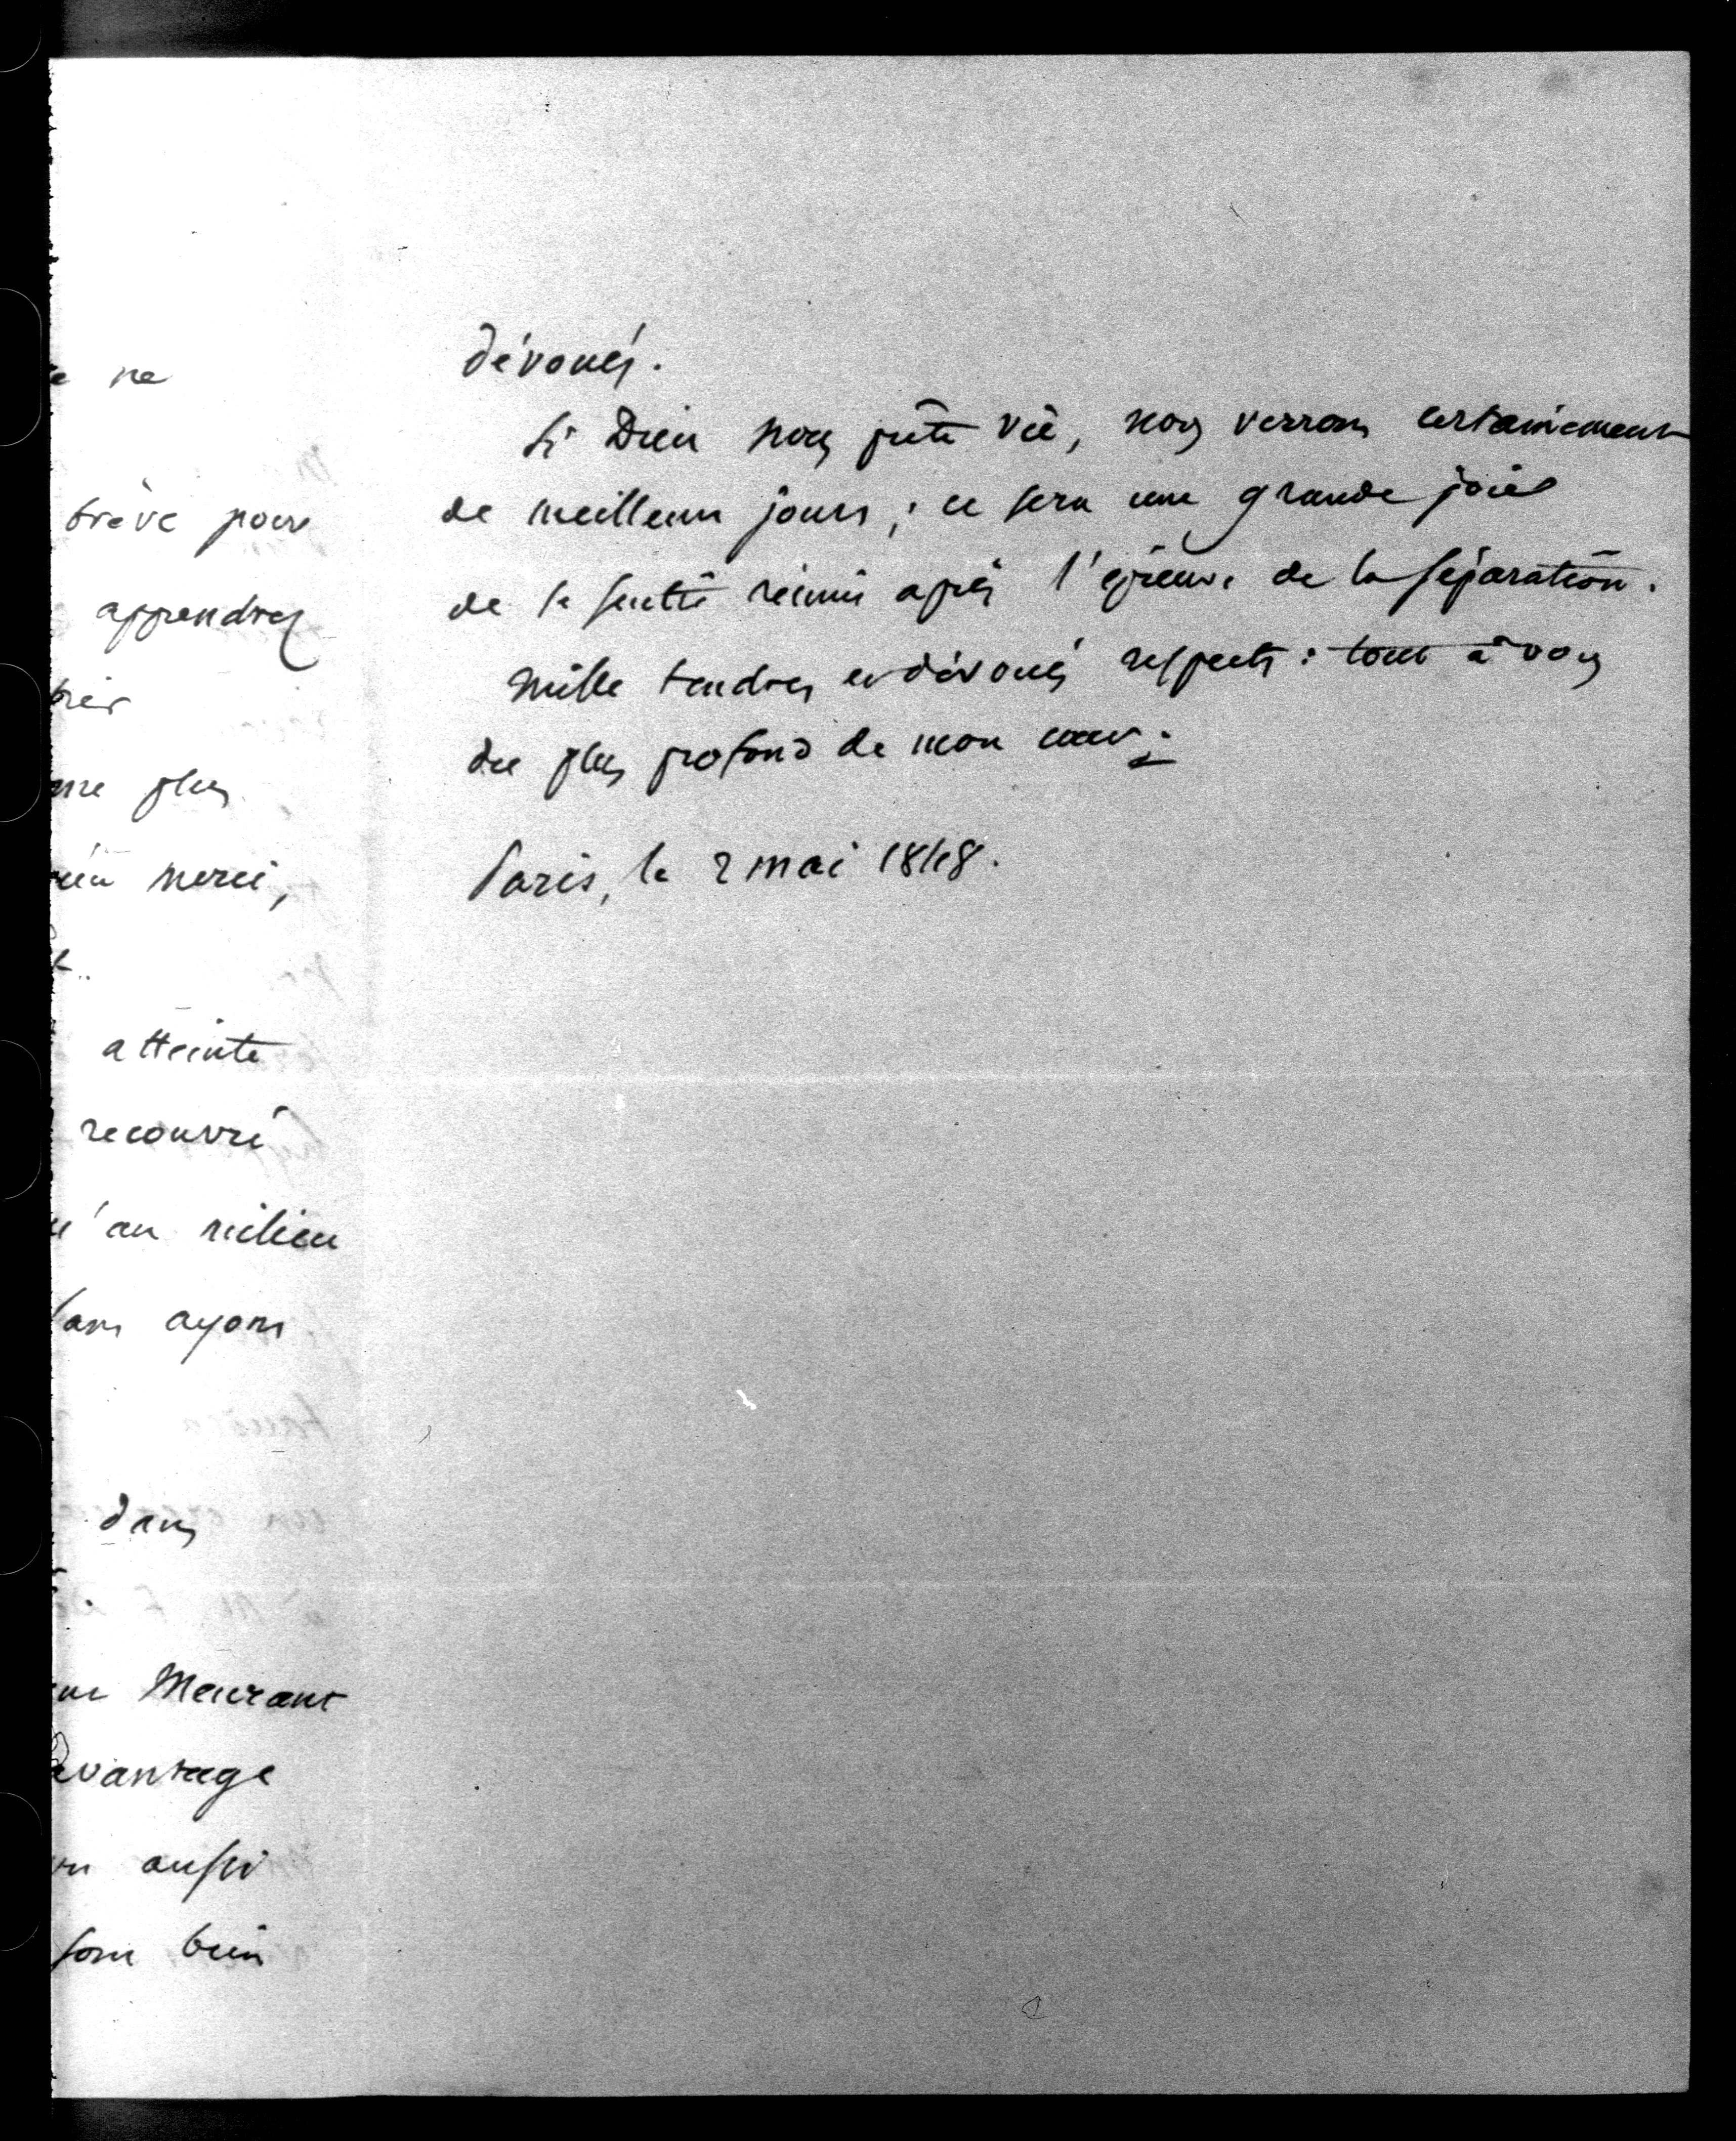 e ne
trève pour
apprendrez
plus
merci,
atteinte
recouvré
u'au milieu
ayons
dans
Meurant
avantage
aussi
sont bien
dévoués.
Si Dieu nous prête vie, nous verrons certainement
de meilleurs jours ; ce sera une grande joie
de se sentir réunis après l'épreuve de la séparation.
Mille tendres et dévoués respects : tout à vous
du plus profond de mon cœur.
Paris, le 2 mai 1848.